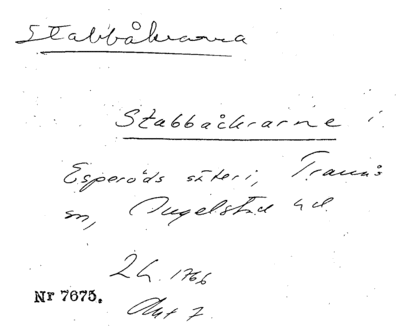 Stabbåkrarna
Stabbåckrarne i
Esperöds säteri, Tranås
sn, Ingelstad hd.
LH 1766
Akt 7.
Nr 7675.